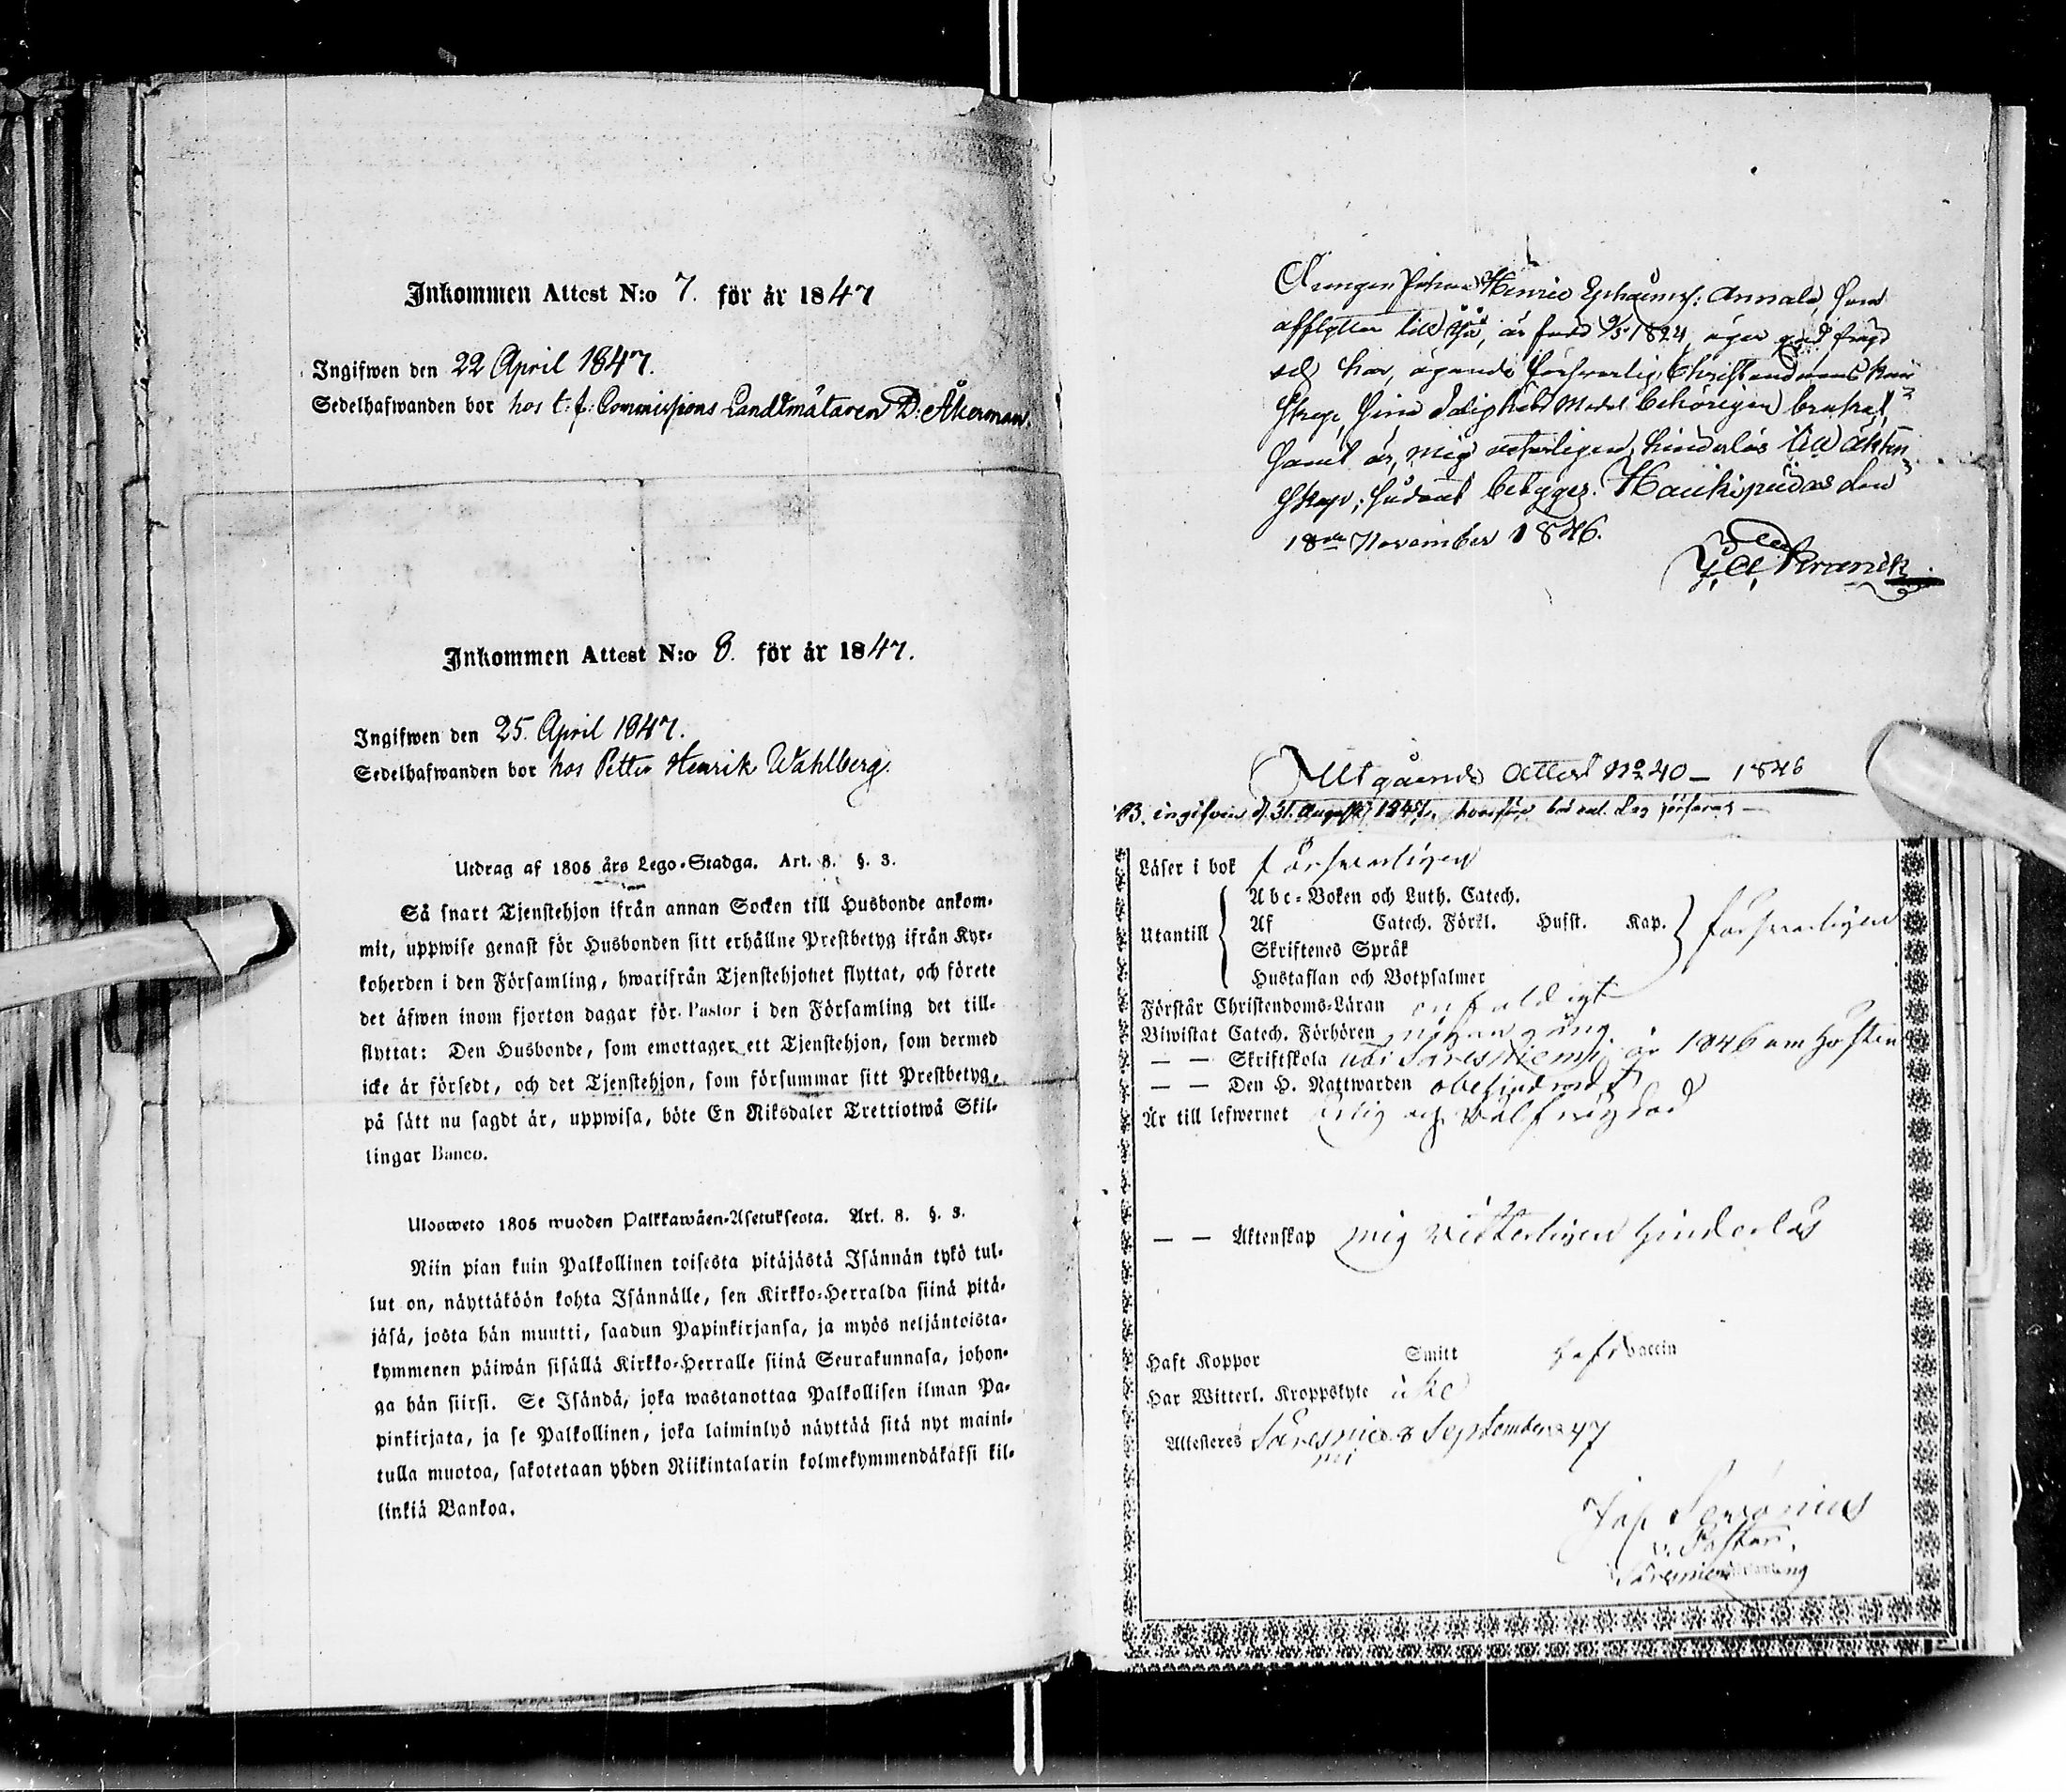 Inkommen Attest N:o 7. för år 1847
Ingifwen den 22 April 1847.
Sedelhafwanden bor hos t. f. Commissions Landtmätaren D: Åkerman.
Inkommen Attest N:o 8. för år 1847.
Ingifwen den 25. April 1847.
Sedelhafwanden bor hos Petter Henrik Wahlberg.
Utdrag af 1805 års Lego-Stadga. Art. 8. §. 3.
Så snart Tjenstehjon ifrån annan Socken till Husbonde ankom-
mit, uppwise genast för Husbonden sitt erhållne Prestbetyg ifrån Kyr-
koherden i den Församling, hwarifrån Tjenstehjonet flyttat, och förete
det äfwen inom fjorton dagar för Pastor i den Församling det till-
flyttat: Den Husbonde, som emottager ett Tjenstehjon, som dermed
icke är försedt, och det Tjenstehjon, som försummar sitt Prestbetyg,
på sätt nu sagdt är, uppwisa, böte En Riksdaler Trettiotwå Skil-
lingar Banco.
Ulosweto 1805 wuoden Palkkawäen-Asetuksesta. Art. 8. §. 3.
Niin pian kuin Palkollinen toisesta pitäjästä Isännän tykö tul-
lut on, näyttäköön kohta Isännälle, sen Kirkko-Herralda siinä pitä-
jäsä, josta hän muutti, saadun Papinkirjansa, ja myös neljäntoista-
kymmenen päiwän sisällä Kirkko-Herralle siinä Seurakunnasa, johon-
ga hän siirsi. Se Isändä, joka wastanottaa Palkollisen ilman Pa-
pinkirjata, ja se Palkollinen, joka laiminlyö näyttää sitä nyt maini-
tulla muotoa, sakotetaan yhden Riikintalarin kolmekymmendäkaksi kil-
linkiä Bankoa.
Drengen Johan Henric Annala, som
afflyttar till är född 9/5 1824, äger god frägd
och har, ägande försvarlig Christendoms kun-
skap, sina Salighets Medel behörigen brukat,
samt är, mig veterligen, hinderlös till äkten-
skap; sådant betygges. Haukipudas den
18de November 1846.
Utgående Attest No 40 — 1846
NB. ingifven d. 31. Augusti 1847,
Läser i bok försvarligen
Abc-Boken och Luth. Catech.
Utantill Af Catech. Förkl. Husst. Kap. försvarligen
Skriftenes Språk
Hustaflan och Botpsalmer
Förstår Christendoms-Läran enfaldigt
Biwistat Catech. Förhören någon gång
— — Skriftskola år 1846 om hösten
— — Den H. Nattwarden obehindrad
Är till lefwernet ärlig och välfrägdad
— — Äktenskap mig vitterligen hinderlös
Haft Koppor Smitt haft vaccin
Har Witterl. Kroppslyte icke
Attesteres September 47
v. Pastor,